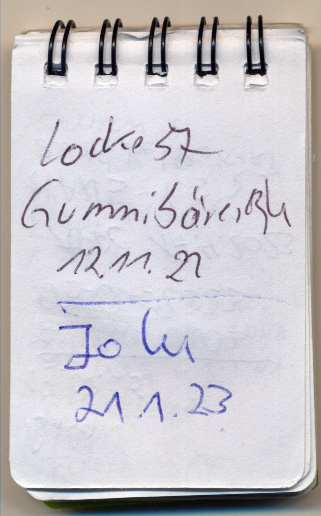 Locke57
Gummibären
12.11.22
John
21.1.23